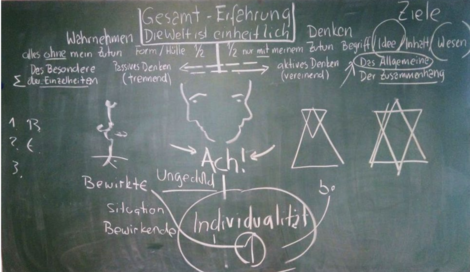 Gesamt-Erfahrung
Ziele
Die Welt ist einheitlich
Wahrnehmen
Denken
alles ohne mein zutun Form/Hülle 1/2 1/2 nur mit meinem zutun Begriff/Idee/Inhalt/Wesen
Das Besondere
Passives Denken
aktives Denken
Das Allgemeine
Σ der Einzelheiten
(trennend)
(vereinend)
Der Zusammenhang
1 B
2. E.
3.
Ach!
Ungeduld
Bewirkte
b.
Situation
Individualität
Bewirkende
1
!